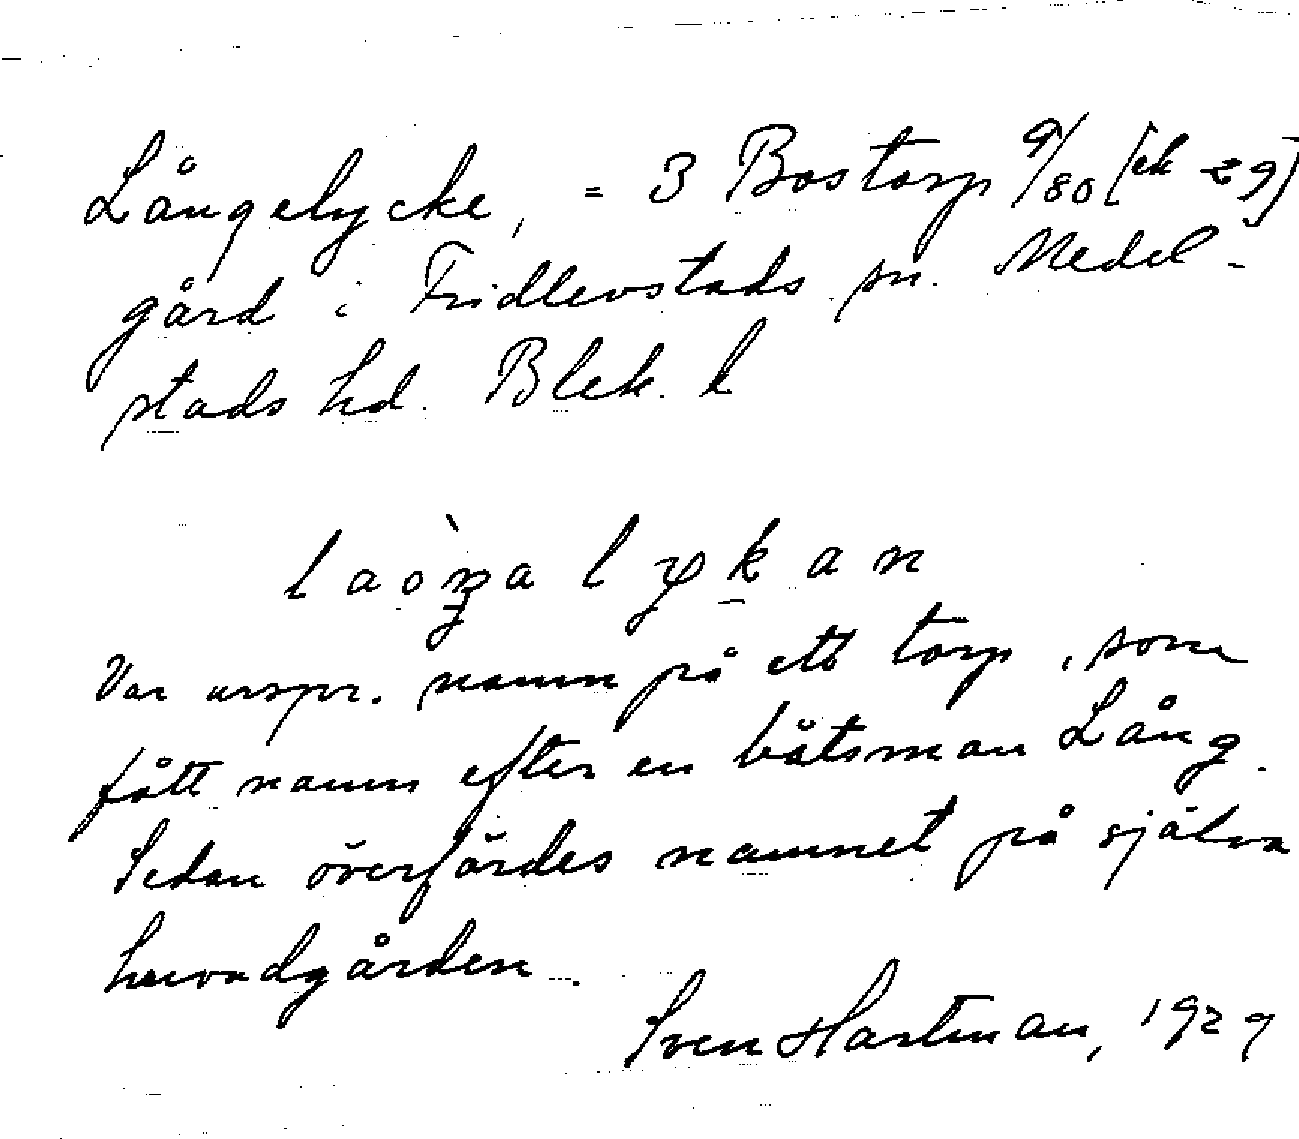 Långelycke, = 3 Bostorp 9/80 [ek 29]
gård i Fridlevstads sn. Medel-
stads hd. Blek. l
Var urspr. namn på ett torp, som
fått namn efter en båtsman Lång.
Sedan överfördes namnet på själva
huvudgården.
Sven Hartman, 1929